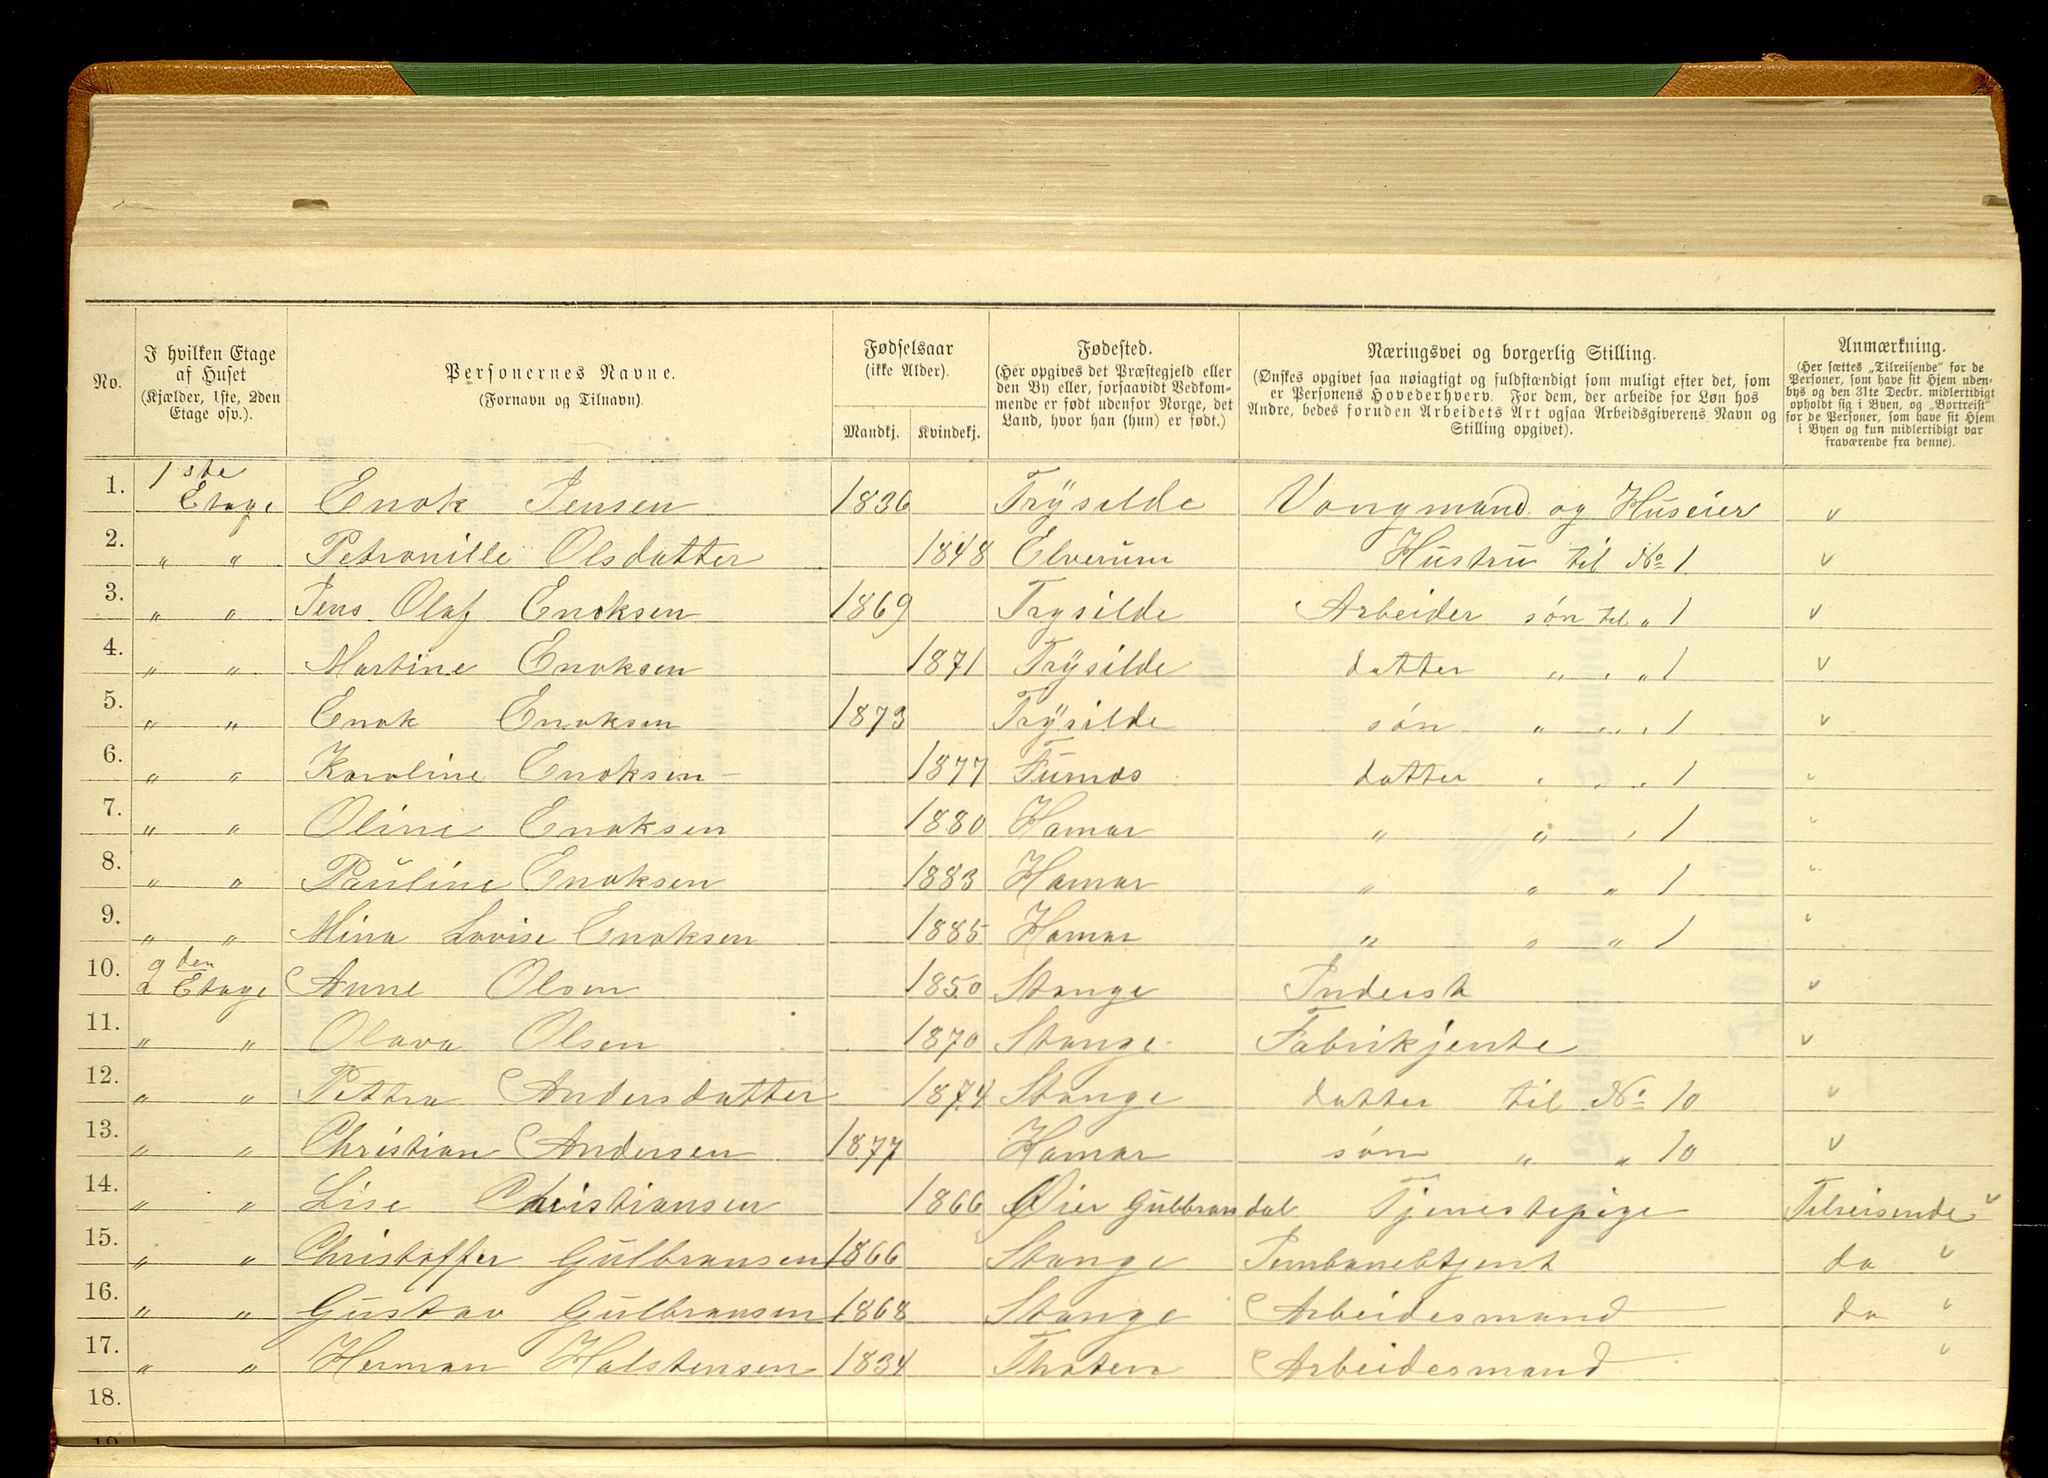 No. | I hvilken Etage af Huset (Kjælder, 1ste, 2den Etage osv.). | Personernes Navne. (Fornavn og Tilnavn). | Fødselsaar (ikke Alder). Mandkj. | Kvindekj. | Fødested. (Her opgives det Præstegjeld eller den By eller, forsaavidt Vedkommende er født udenfor Norge, det Land, hvor han (hun) er født.) | Næringsvei og borgerlig Stilling. (Ønskes opgivet saa nøiagtigt og fuldstændigt som muligt efter det, som er Personens Hovederhverv. For dem, der arbeide for Løn hos Andre, bedes foruden Arbeidets Art ogsaa Arbeidsgiverens Navn og Stilling opgivet). | Anmærkning. (Her sættes „Tilreisende" for de Personer, som have sit Hjem udenbys og den 31te Decbr. midlertidigt opholdt sig i Byen, og „Bortreist" for de Personer, som have sit Hjem i Byen og kun midlertidigt var fraværende fra denne).
1. 1ste Etage Enok Jensen 1836 Trysilde Vongmand og Huseier v
2. " " Petronille Olsdatter 1848 Elverum Hustru til No 1 v
3. " " Jens Olaf Enoksen 1869 Trysilde Arbeider søn til " 1 v
4. " " Martine Enoksen 1871 Trysilde datter " " " 1 v
5. " " Enok Enoksen 1873 Trysilde søn " " " 1 v
6. " " Karoline Enoksen 1877 Furnos datter " " " 1 v
7. " " Oline Enoksen 1880 Hamar " " " 1 v
8. " " Pauline Enoksen 1883 Hamar " " " 1 v
9. " " Mina Lovise Enoksen 1885 Hamar " " " 1 v
10. 2den Etage Anne Olsen 1850 Stange Inderst v
11. " " Olava Olsen 1870 Stange Fabrikjente v
12. " " Pettra Andersdatter 1874 Stange datter til No 10 v
13. " " Christian Andersen 1877 Hamar søn " " 10 v
14. " " Lise Christiansen 1866 Øier Gulbransdal Tjenestepige Tilreisende v
15. " " Christoffer Gulbransen 1866 Stange Jernbanebtjent do v
16. " " Gustav Gulbransen 1868 Stange Arbeidesmand do v
17. " " Herman Halstensen 1834 Thoten Arbeidesmand v
18.
19.